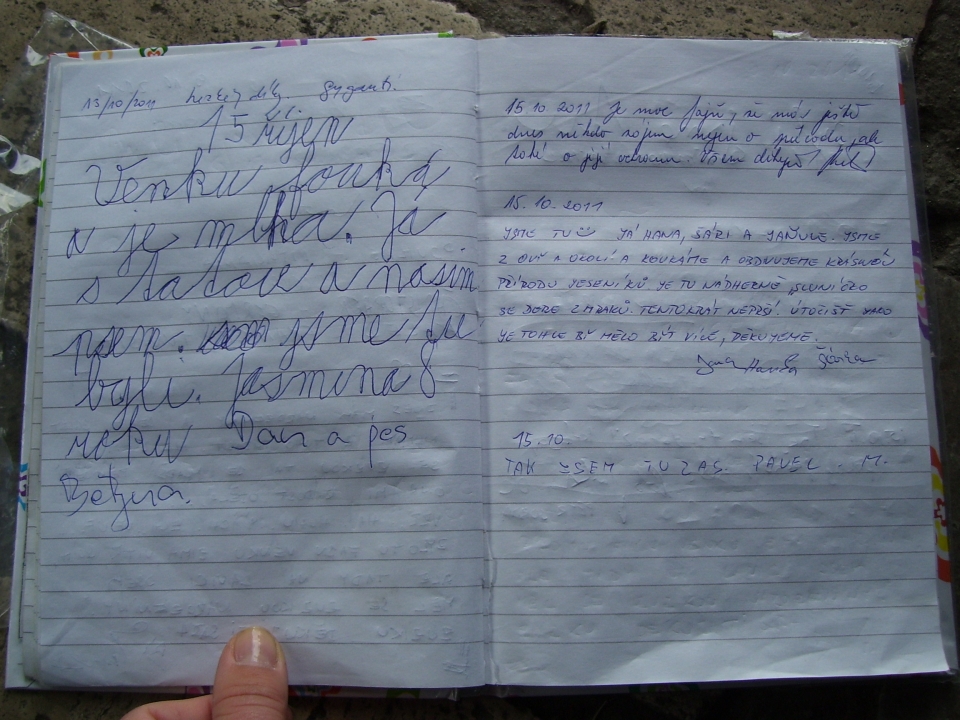 13/10/2011 hezkej díky
15 říjen
Venku fouká
a je mlha. Já
s tatou a nasim
psem. jsme tu
byli. Jasmina 8
roku Dan a pes
Betyna.
15 10 2011 Je moc fajn, že má ještě
dnes nikdo zájem nejen o přírodu, ale
také o její ochranu. Všem děkuji!
15.10.2011
JSME TU JÁ HANA, ŠÁRI A JAŇULE. JSME
Z A OKOLÍ A KOUKÁME A OBDIVUJEME KRÁSNOU
PŘÍRODU JESENÍKŮ. JE TU NÁDHERNĚ, SLUNÍČKO
SE DERE Z MRAKŮ. TENTOKRÁT NEPRŠÍ. ÚTOČIŠŤ JAKO
JE TOHLE BY MĚLO BÝT VÍCE, DĚKUJEME.
Jana Hanka Šárka
15.10.
TAK JSEM TU ZAS. PAVEL. M.